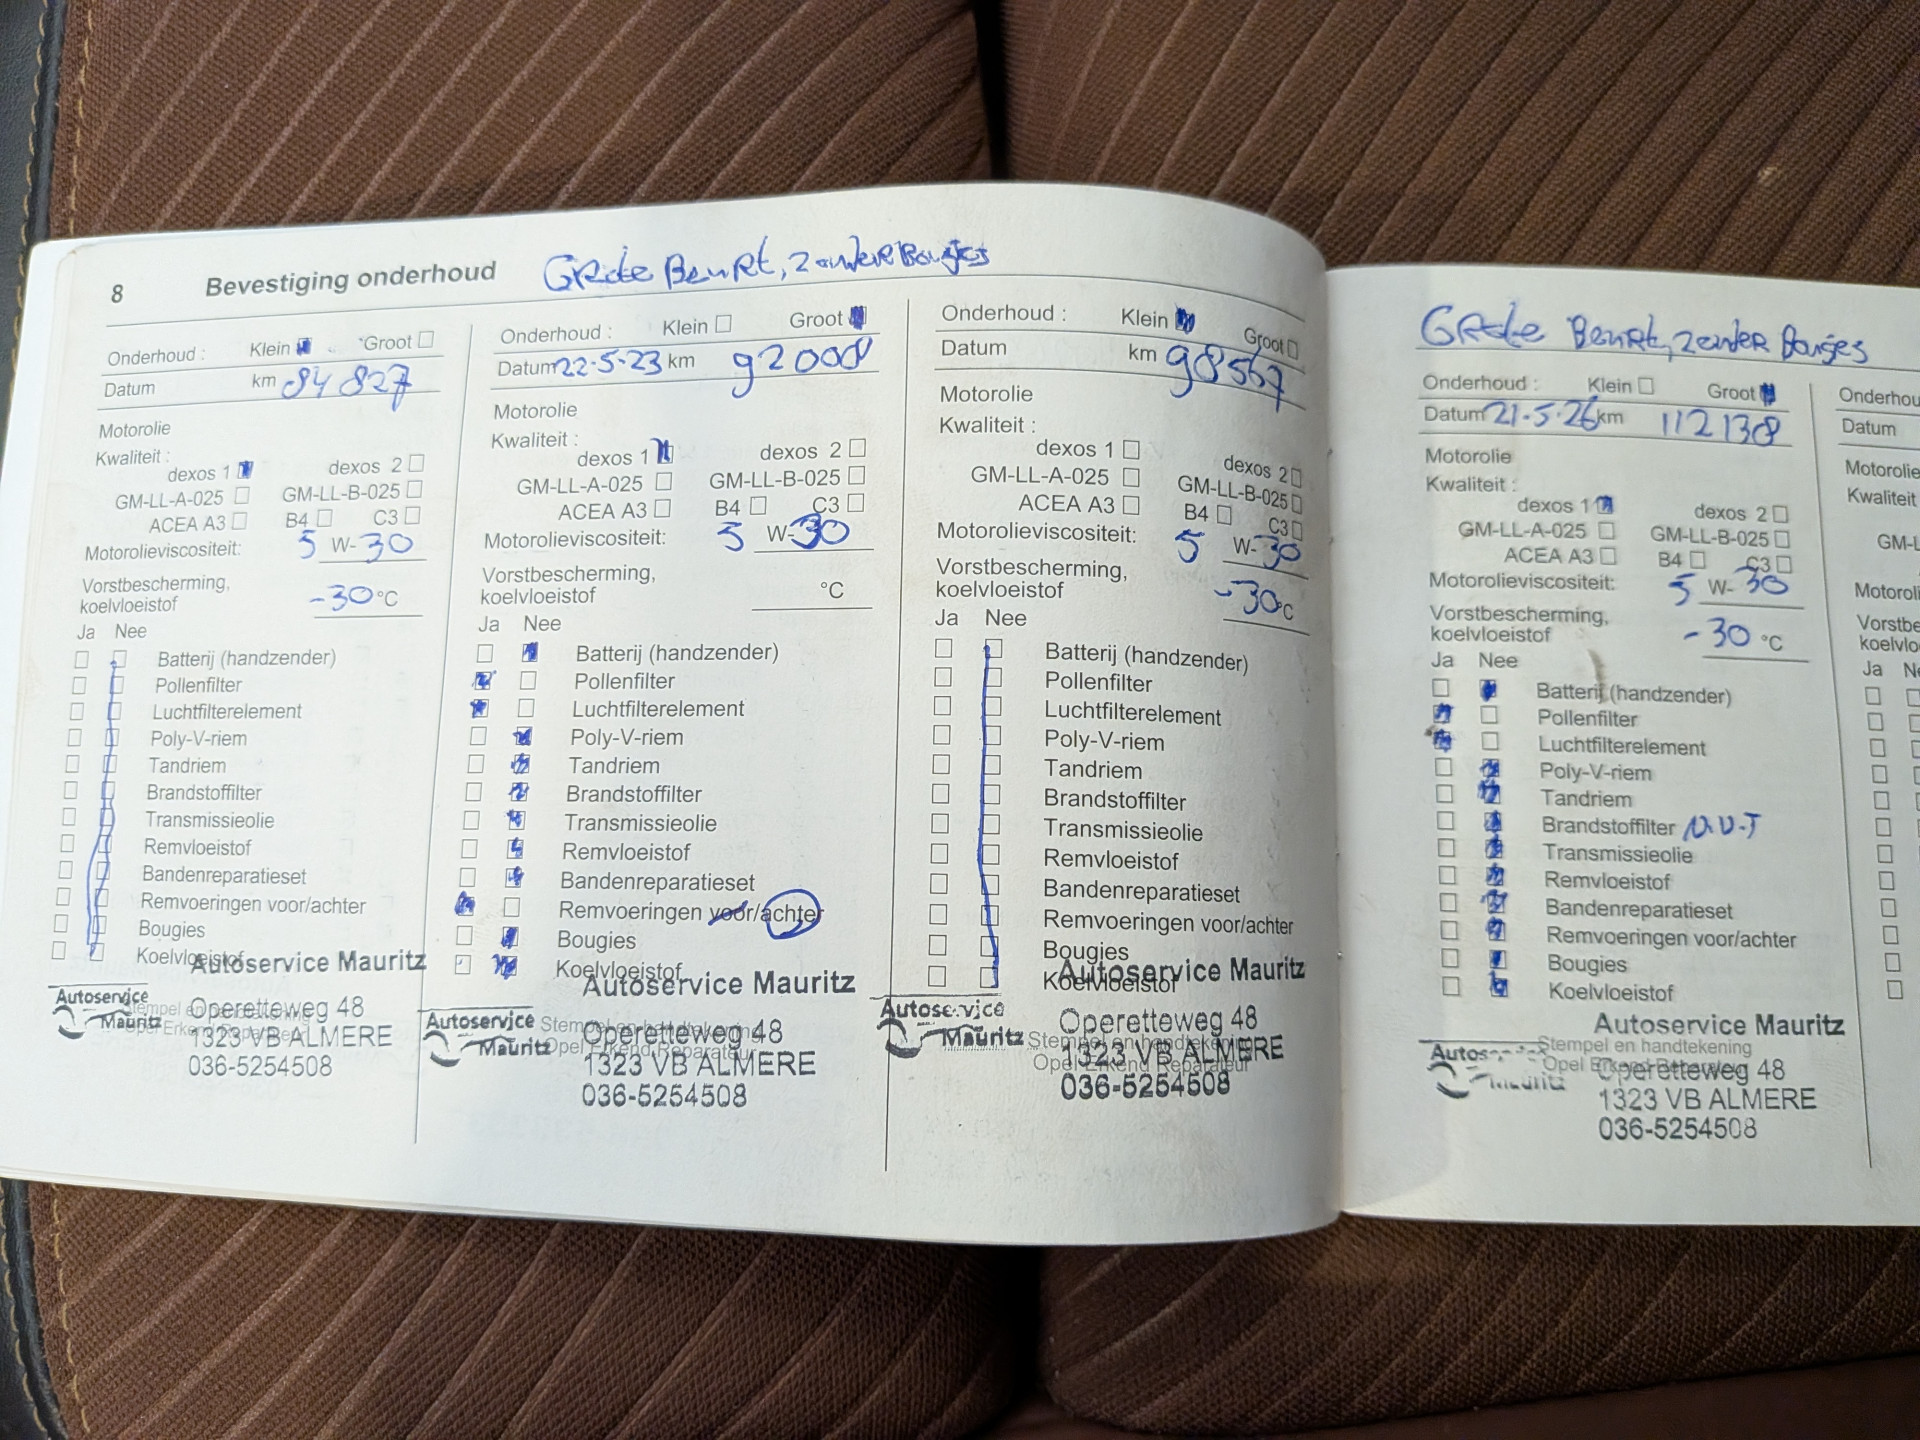 8 Bevestiging onderhoud Grote Beurt, zonder Bougies
Onderhoud : Klein Groot
Datum km 84827
Motorolie
Kwaliteit :
dexos 1 dexos 2
GM-LL-A-025 GM-LL-B-025
ACEA A3 B4 C3
Motorolieviscositeit: 5 W-30
Vorstbescherming,
koelvloeistof -30 °C
Ja Nee
Batterij (handzender)
Pollenfilter
Luchtfilterelement
Poly-V-riem
Tandriem
Brandstoffilter
Transmissieolie
Remvloeistof
Bandenreparatieset
Remvoeringen voor/achter
Bougies
Koelvloeistof
Autoservice Mauritz
Autoservice Mauritz
Stempel en handtekening
Opel Erkend Reparateur
Operetteweg 48
1323 VB ALMERE
036-5254508
Onderhoud : Klein Groot
Datum 22-5-23 km 92008
Motorolie
Kwaliteit :
dexos 1 dexos 2
GM-LL-A-025 GM-LL-B-025
ACEA A3 B4 C3
Motorolieviscositeit: 5 W-30
Vorstbescherming,
koelvloeistof °C
Ja Nee
Batterij (handzender)
Pollenfilter
Luchtfilterelement
Poly-V-riem
Tandriem
Brandstoffilter
Transmissieolie
Remvloeistof
Bandenreparatieset
Remvoeringen voor/achter
Bougies
Koelvloeistof
Autoservice Mauritz
Autoservice Mauritz
Stempel en handtekening
Opel Erkend Reparateur
Operetteweg 48
1323 VB ALMERE
036-5254508
Onderhoud : Klein Groot
Datum km 98567
Motorolie
Kwaliteit :
dexos 1 dexos 2
GM-LL-A-025 GM-LL-B-025
ACEA A3 B4 C3
Motorolieviscositeit: 5 W-30
Vorstbescherming,
koelvloeistof -30 °C
Ja Nee
Batterij (handzender)
Pollenfilter
Luchtfilterelement
Poly-V-riem
Tandriem
Brandstoffilter
Transmissieolie
Remvloeistof
Bandenreparatieset
Remvoeringen voor/achter
Bougies
Koelvloeistof
Autoservice Mauritz
Autoservice Mauritz
Stempel en handtekening
Opel Erkend Reparateur
Operetteweg 48
1323 VB ALMERE
036-5254508
Grote Beurt, zonder Bougies
Onderhoud : Klein Groot
Datum 21-5-26 km 112138
Motorolie
Kwaliteit :
dexos 1 dexos 2
GM-LL-A-025 GM-LL-B-025
ACEA A3 B4 C3
Motorolieviscositeit: 5 W-30
Vorstbescherming,
koelvloeistof -30 °C
Ja Nee
Batterij (handzender)
Pollenfilter
Luchtfilterelement
Poly-V-riem
Tandriem
Brandstoffilter N.V.T
Transmissieolie
Remvloeistof
Bandenreparatieset
Remvoeringen voor/achter
Bougies
Koelvloeistof
Autoservice Mauritz
Stempel en handtekening
Opel Erkend Reparateur
Operetteweg 48
1323 VB ALMERE
036-5254508
Onderhou
Datum
Motorolie
Kwaliteit
GM-L
Motoroli
Vorstbe
koelvlo
Ja Ne